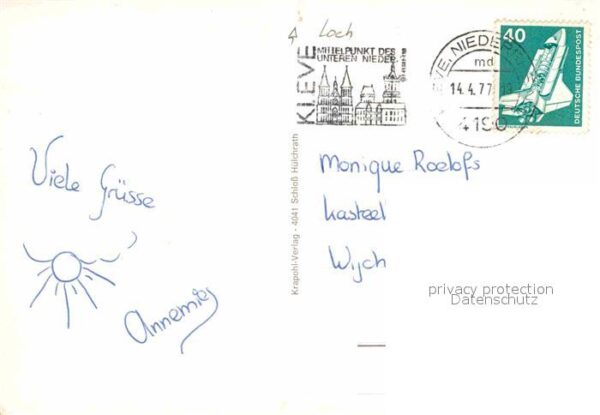 Loch
KLEVE
MITTELPUNKT DES
UNTEREN NIEDER
KLEVE, NIEDER
md
14.4.77
4190
40
DEUTSCHE BUNDESPOST
Viele Grüsse
Annemies
Krapohl-Verlag - 4041 Schloß Hülchrath
Monique Roelofs
Kasteel
Wijch
privacy protection
Datenschutz